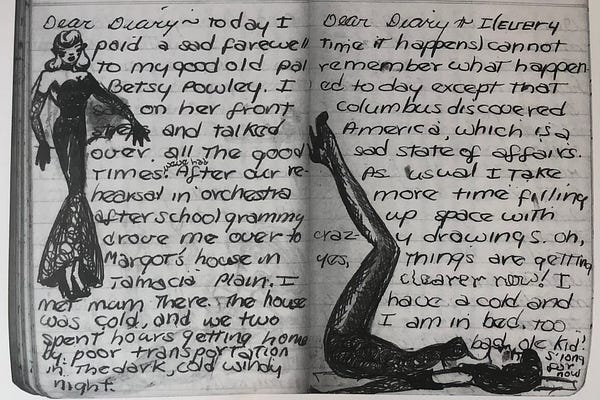 Dear Diary~ today I
paid a sad farewell
to my good old pal
Betsy Powley. I
sat on her front
steps and talked
over all the good
times we've had. After our re-
hearsal in orchestra
after school grammy
drove me over to
Margot's house in
Jamacia Plain. I
met mum there. The house
was cold, and we two
spent hours getting home
by poor transportation
in the dark, cold windy
night.
Dear Diary~ I (every
time it happens) cannot
remember what happen-
ed today except that
Columbus discovered
America, which is a
sad state of affairs.
As usual I take
more time filling
up space with
craz- y drawings. oh,
yes, things are getting
clearer now! I
have a cold and
I am in bed. too
bad, ole kid!
S'long
for
now